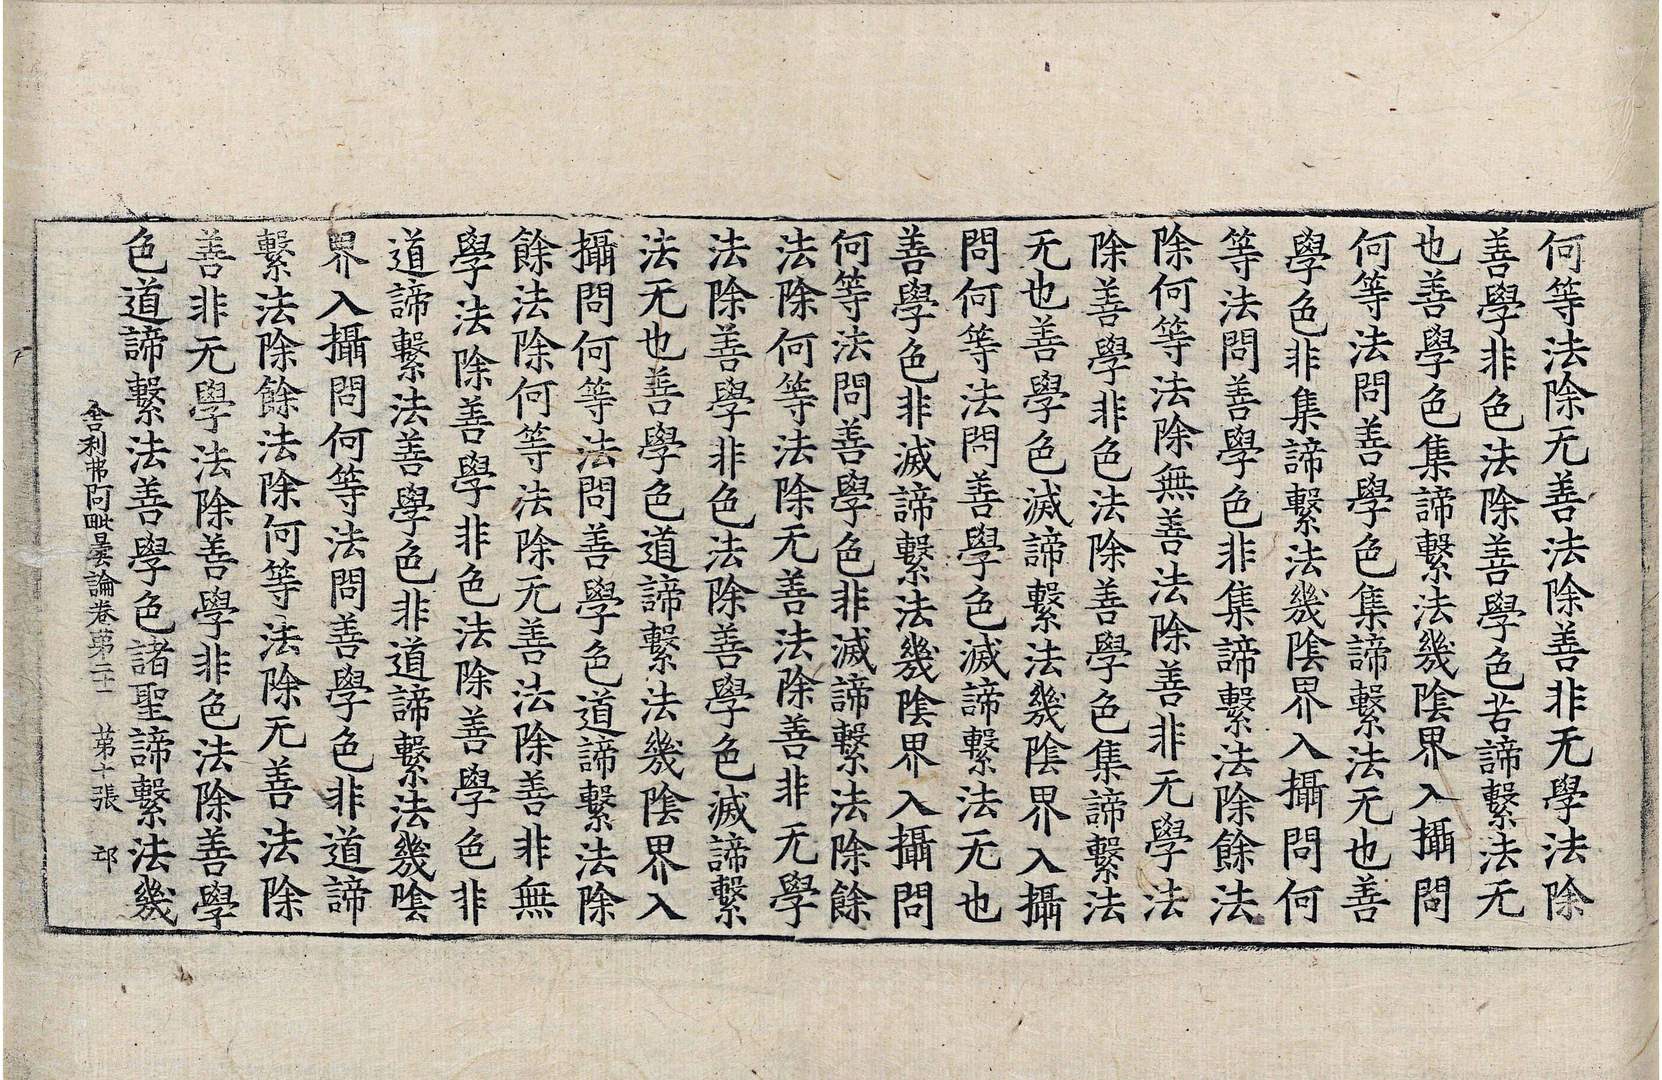 何等法除无善法除善非无學法除
善學非色法除善學色苦諦繫法无
也善學色集諦繫法幾陰界入攝問
何等法問善學色集諦繫法无也善
學色非集諦繫法幾陰界入攝問何
等法問善學色非集諦繫法除餘法
除何等法除無善法除善非无學法
除善學非色法除善學色集諦繫法
无也善學色滅諦繫法幾陰界入攝
問何等法問善學色滅諦繫法无也
善學色非滅諦繫法幾陰界入攝問
何等法問善學色非滅諦繫法除餘
法除何等法除无善法除善非无學
法除善學非色法除善學色滅諦繫
法无也善學色道諦繫法幾陰界入
攝問何等法問善學色道諦繫法除
餘法除何等法除无善法除善非無
學法除善學非色法除善學色非
道諦繫法善學色非道諦繫法幾陰
界入攝問何等法問善學色非道諦
繫法除餘法除何等法除无善法除
善非无學法除善學非色法除善學
色道諦繫法善學色諸聖諦繫法幾
舍利弗阿毗曇論卷苐二十一 苐十張 邛